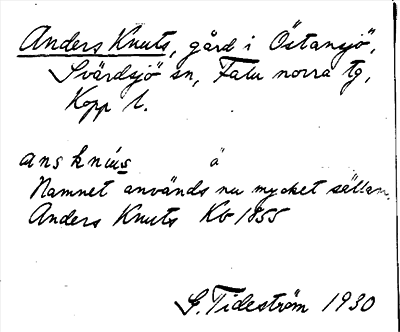 Anders Knuts, gård i Östansjö,
Svärdsjö sn, Falu norra tg,
Kopp l.
ans knius ä
Namnet används nu mycket sällan.
Anders Knuts Kb 1855
G. Tideström 1930